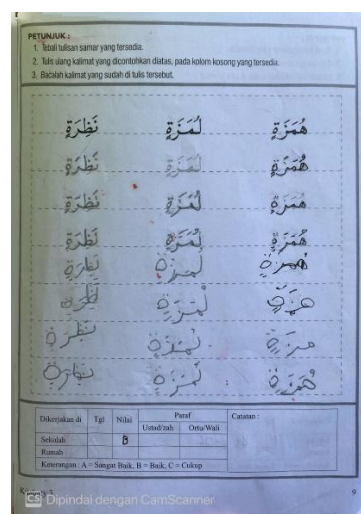 PETUNJUK :
1. Tebali tulisan samar yang tersedia.
2. Tulis ulang kalimat yang dicontohkan diatas, pada kolom kosong yang tersedia.
3. Bacalah kalimat yang sudah di tulis tersebut.
هُمَزَةٍ لُمَزَةٍ نَظِرَةٍ
هُمَزَةٍ لُمَزَةٍ نَظِرَةٍ
هُمَزَةٍ لُمَزَةٍ نَظِرَةٍ
هُمَزَةٍ لُمَزَةٍ نَظِرَةٍ
Dikerjakan di Tgl Nilai Paraf Catatan :
Ustad/zah Ortu/Wali
Sekolah B
Rumah
Keterangan : A = Sangat Baik, B = Baik, C = Cukup
9
CS Dipindai dengan CamScanner